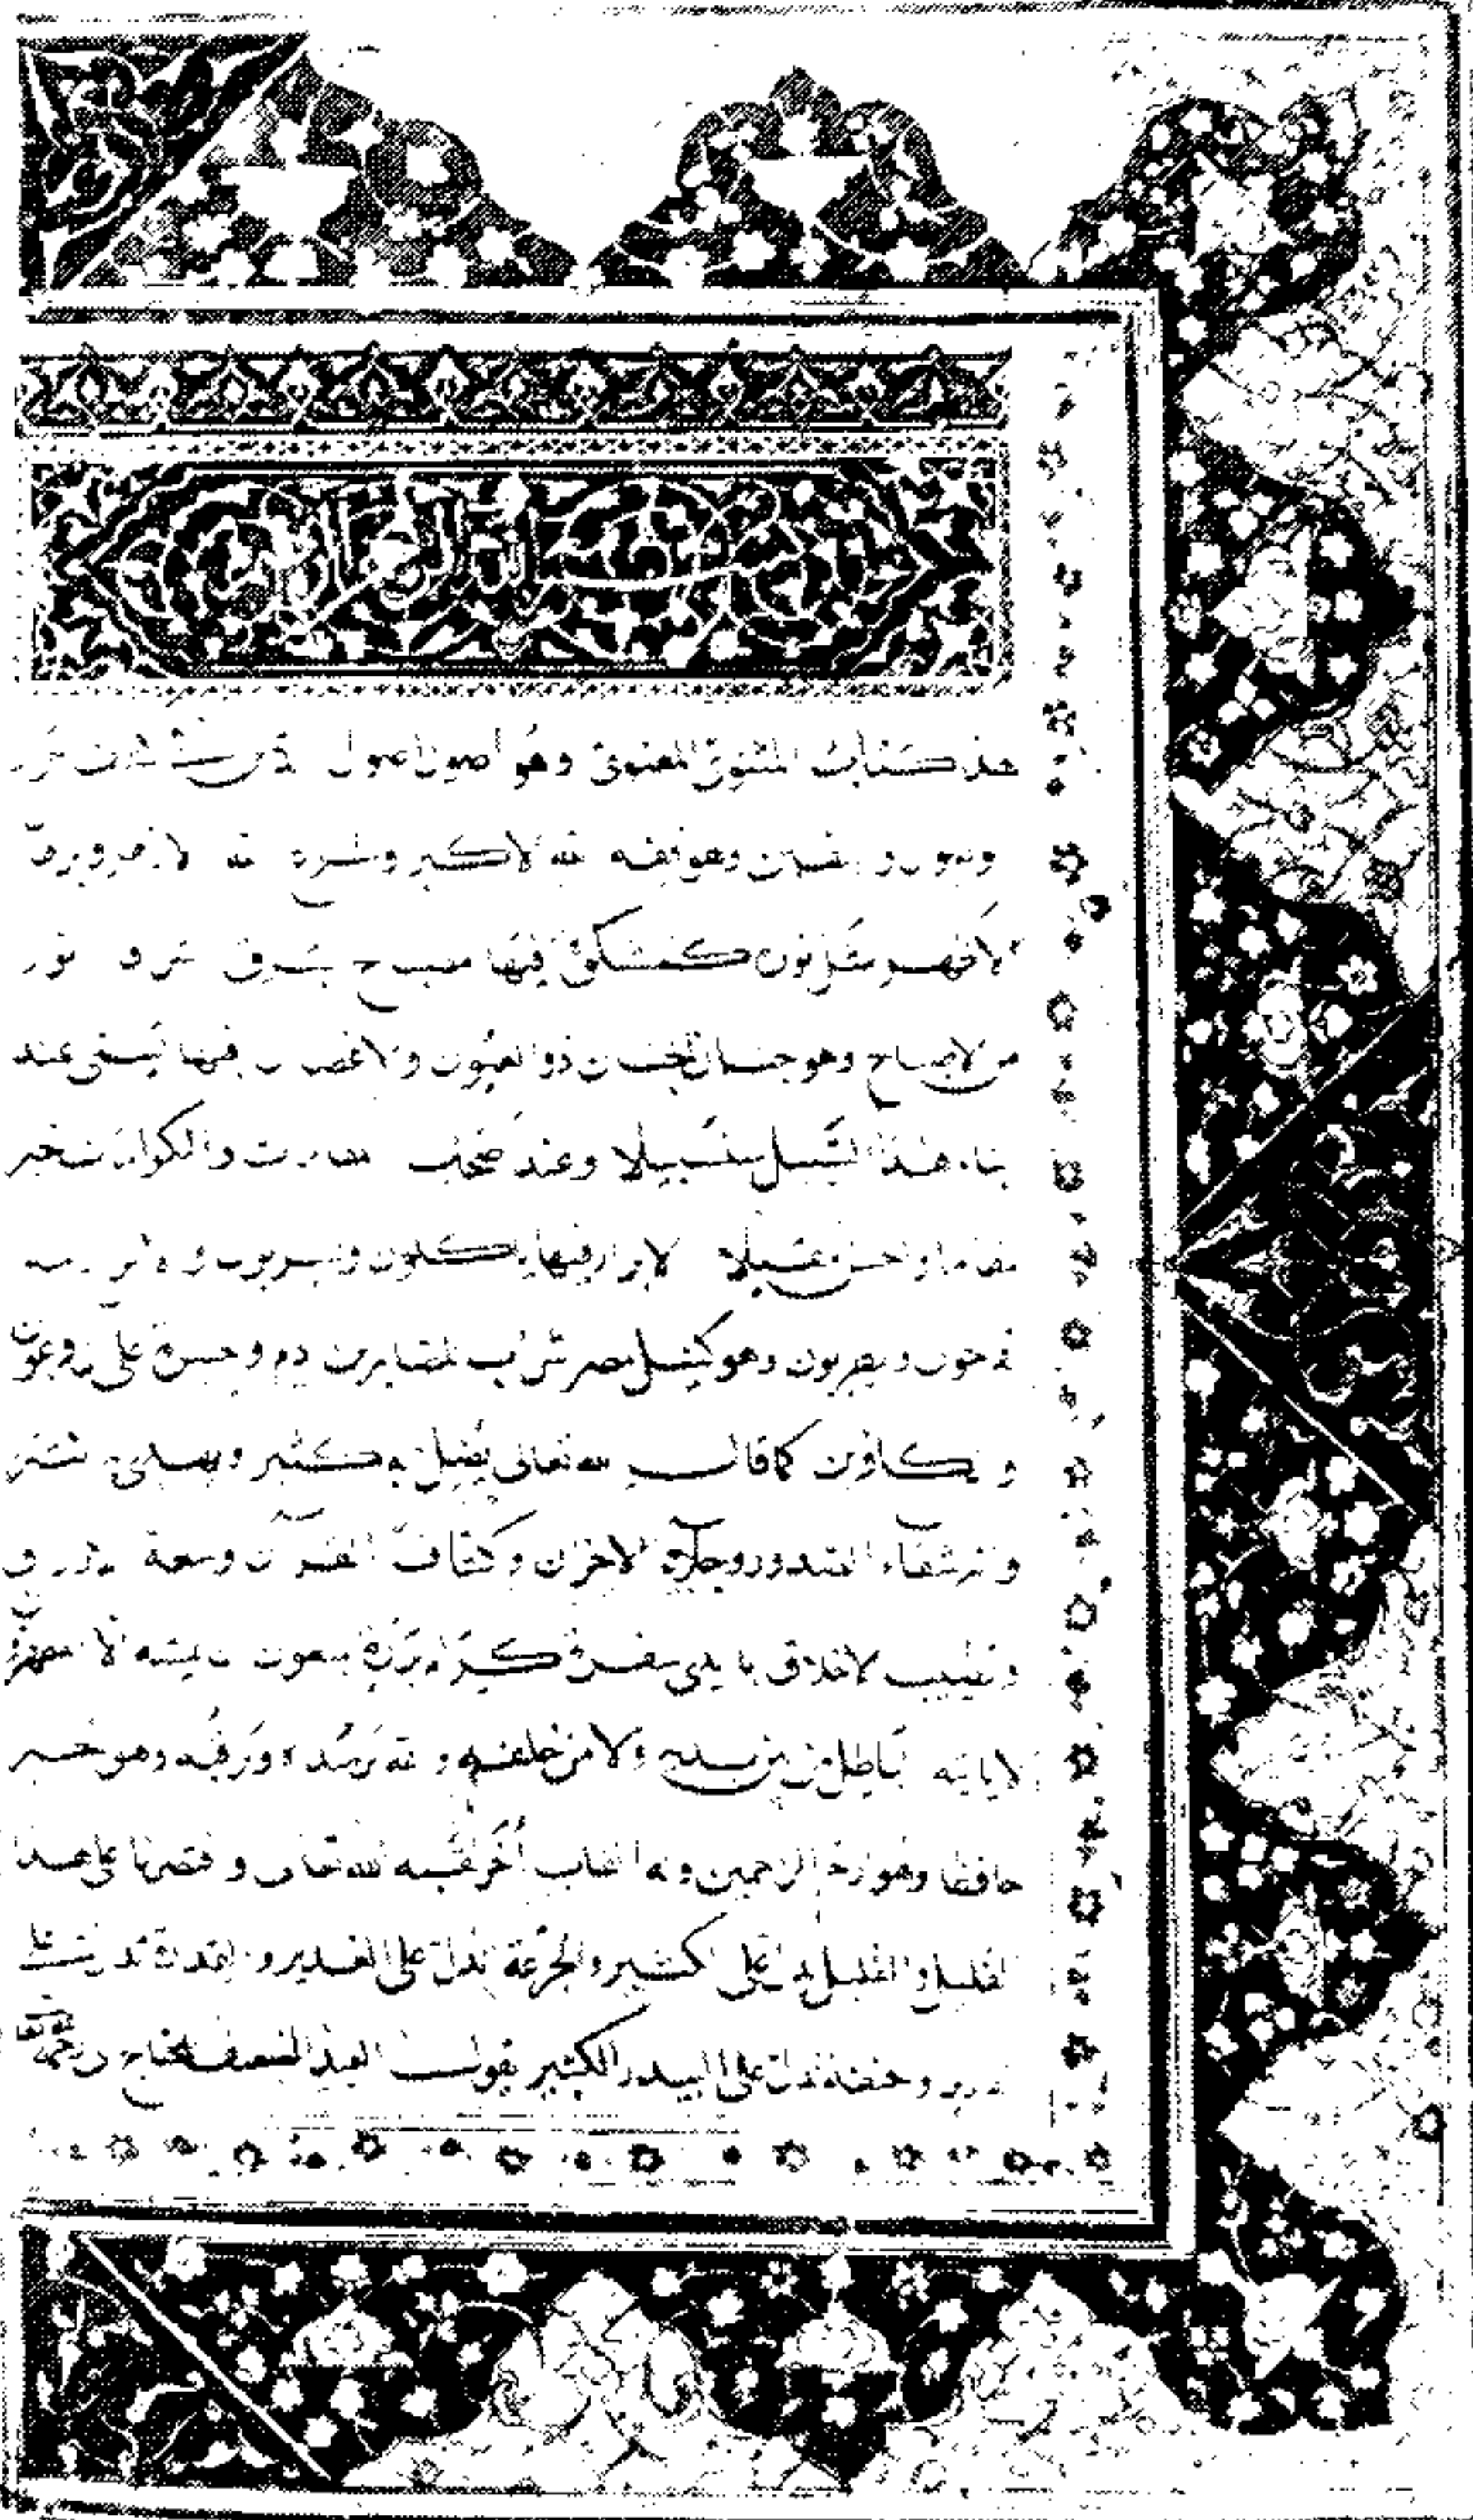 هذا كتاب المثنوي المعنوي وهو اصول اصول
وهو فقه الله الاكبر وشرع الله الازهر وبرهان
الاظهر مثل نوره كمشكوة فيها مصباح يشرق اشراقا انور
من الاصباح وهو جنان الجنان ذو العيون والاغصان فيها تسمى عند
ابناء هذا السبيل سلسبيلا وعند اصحاب المقامات والكرامات خير
مقاما واحسن مقيلا الابرار فيها ياكلون ويشربون والاحرار منه
يفرحون ويطربون وهو كنيل مصر شراب للصابرين ودم وحسرة على ال فرعون
والكافرين كما قال الله تعالى يضل به كثيرا ويهدي به كثيرا
وانه شفاء الصدور وجلاء الاحزان وكشاف القرآن وسعة الارزاق
وتطييب الاخلاق بايدي سفرة كرام بررة يمنعون ان لا يمسه الا المطهرون
لا ياتيه الباطل من بين يديه ولا من خلفه والله يرصده ويرقبه وهو خير
حافظا وهو ارحم الراحمين وله القاب أخر لقبه الله تعالى واقتصرنا على هذا
القليل والقليل يدل على الكثير والجرعة تدل على الغدير و
وحفنة تدل على البيدر الكبير يقول العبد الضعيف المحتاج الى رحمة الله تعالى